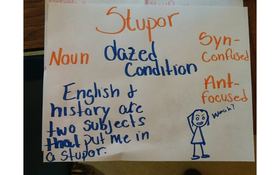 Stupor
Noun
dazed
Condition
Syn-
Confused
Ant-
focused
English &
history are
two subjects
that put me in
a stupor.